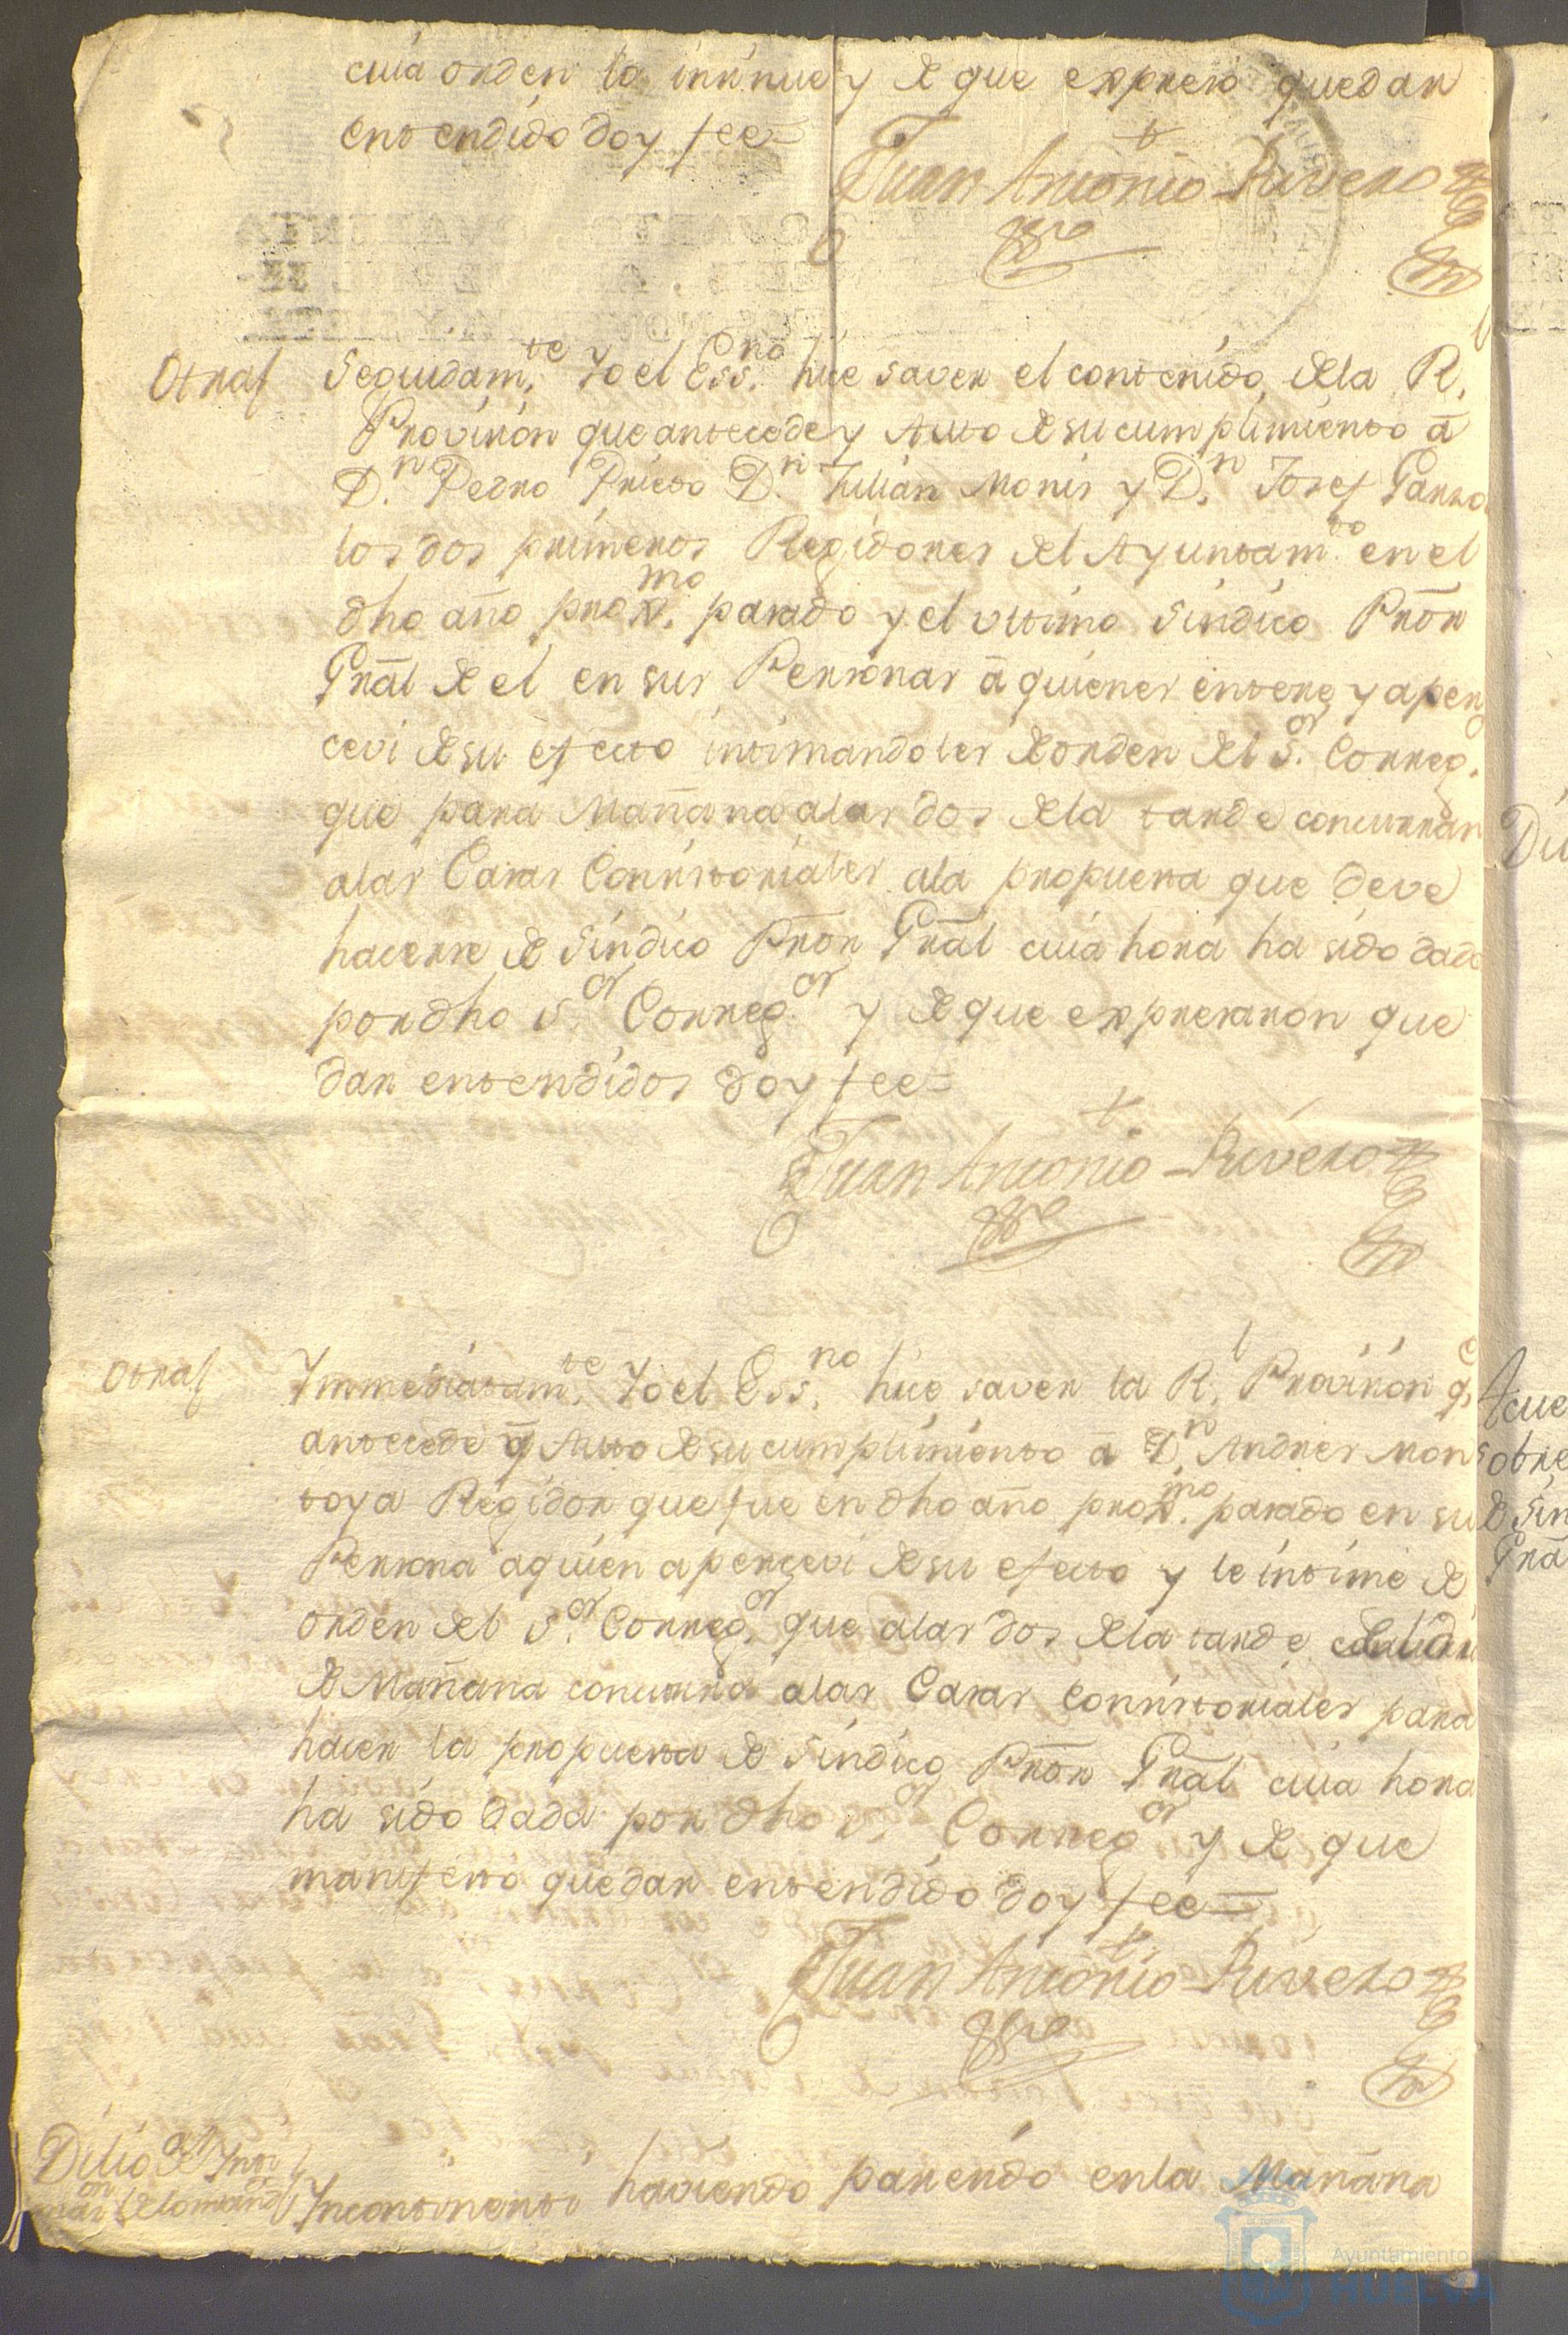 cuia orden la insinue y de que expreso quedar
entendido doy fee=
Juan Antonio Rivero
Otras Seguidam.te Yo el Ess.no hice saver el contenido de la R.l
Provision que antecede y Auto de su cumplimiento â
D.n Pedro Prieto D.n Julian Monis y D.n Josef Garzo
los dos primeros Regidores del Ayuntam.to en el
dho año prox.mo pasado y el ultimo Sindico Prōr
Grāl de el en sus Personas â quienes entere y aper
cevi de su efecto intimandoles de orden del S.or Correg.or
que para Mañana alas dos dela tarde concurran
alas Casas Consistoriales ala propuesta que deve
hacerse de Sindico Prōr Grāl cuia hora ha sido dada
por dho S.or Correg.or y de que expresaron que
dar entendidos doy fee=
Juan Antonio Rivero
Otras Immediatam.te Yo el Ess.no hice saver la R.l Provision q.e
antecede y Auto de su cumplimiento â D.n Andres Mon
toya Regidor que fue en dho año prox.mo pasado en su
Persona aquien apercevi de su efecto y le intime de
orden del S.or Correg.or que alas dos dela tarde del dia
de Mañana concurra alas Casas Consistoriales para
hacer la propuesta de Sindico Prōr Grāl cuia hora
ha sido dada por dho S.or Correg.or y de que
manifesto quedar entendido doy fee=
Juan Antonio Rivero
Incontinenti haviendo parecido en la Mañana
Ayuntamiento
HUELVA